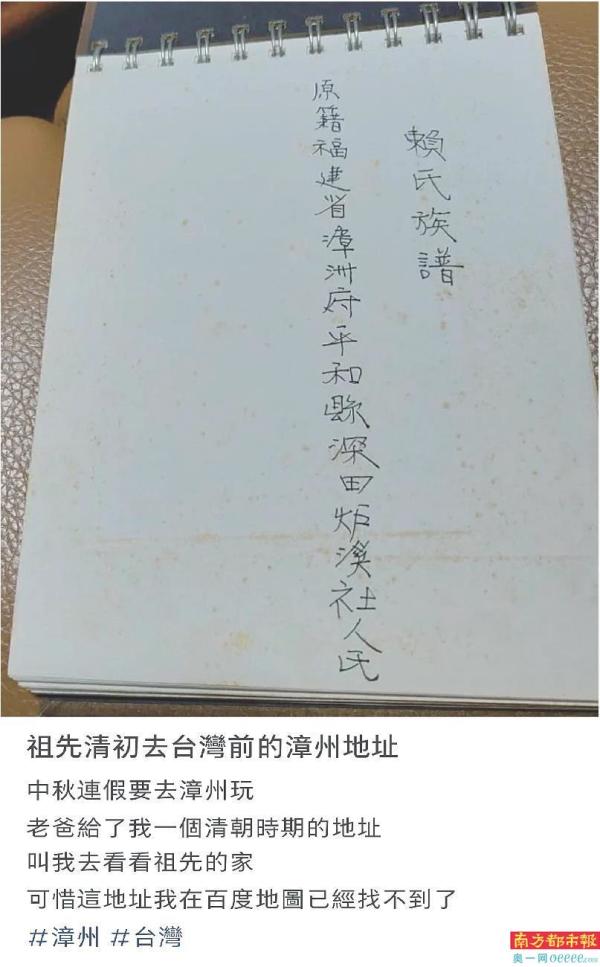 賴氏族譜
原籍福建省漳洲府平和縣深田炉溪社人民
祖先清初去台灣前的漳州地址
中秋連假要去漳州玩
老爸給了我一個清朝時期的地址
叫我去看看祖先的家
可惜這地址我在百度地圖已經找不到了
#漳州 #台灣
南方都市報
奥一网oeeee.com